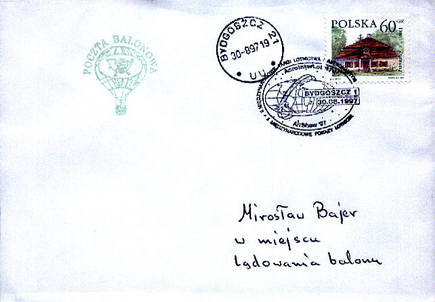 POCZTA BALONOWA
BYDGOSZCZ 21
30-8-97 19
U.U.
POLSKA 60 GR
LOTNICTWA I
BYDGOSZCZ 1
30.08.1997
AirShow '97
MIĘDZYNARODOWE POKAZY LOTNICZE
Mirosław Bajer
w miejscu
lądowania balonu